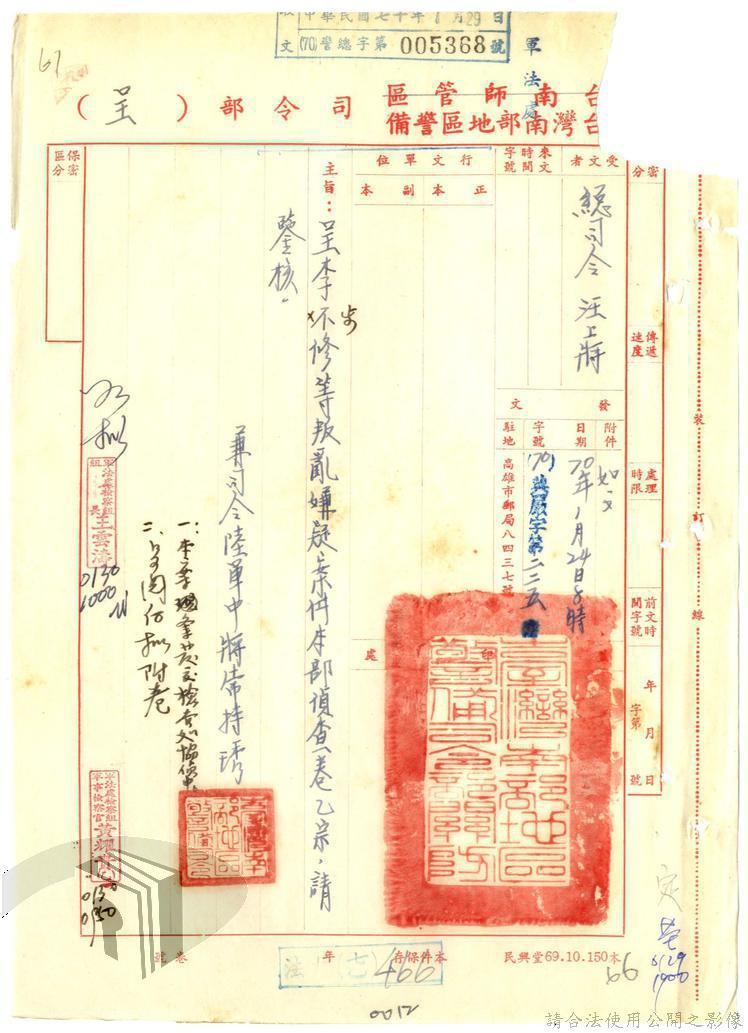 收文
中華民國七十年1月29日
(70)警總字第005368號
軍法處
台南師管區
台灣南部地區警備
司令部
(呈)
67
保密區分
密
傳遞速度
處理時限
前文時間字號
年月日
字第號
受文者
總司令 汪上將
來文時間字號
行文單位
正本
副本
發文
附件
如文
日期
70年1月24日8時
字號
(70)典嚴字第二二五號
駐地
高雄市郵局八四三七號
主旨:呈李步修等叛亂嫌疑案件本部偵查卷乙宗,請
鑒核。
兼司令陸軍中將常持琇
臺灣南部地區警備司令部關防
印
處
軍法處檢察組組長王雲濤
0130
1000
軍法處檢察組軍事檢察官黃
0130
0950
裝訂線
本件保存年
法
(七)
466
卷號
民興堂69.10.150本
66
定
1/29
1900
0012
請合法使用公開之影像